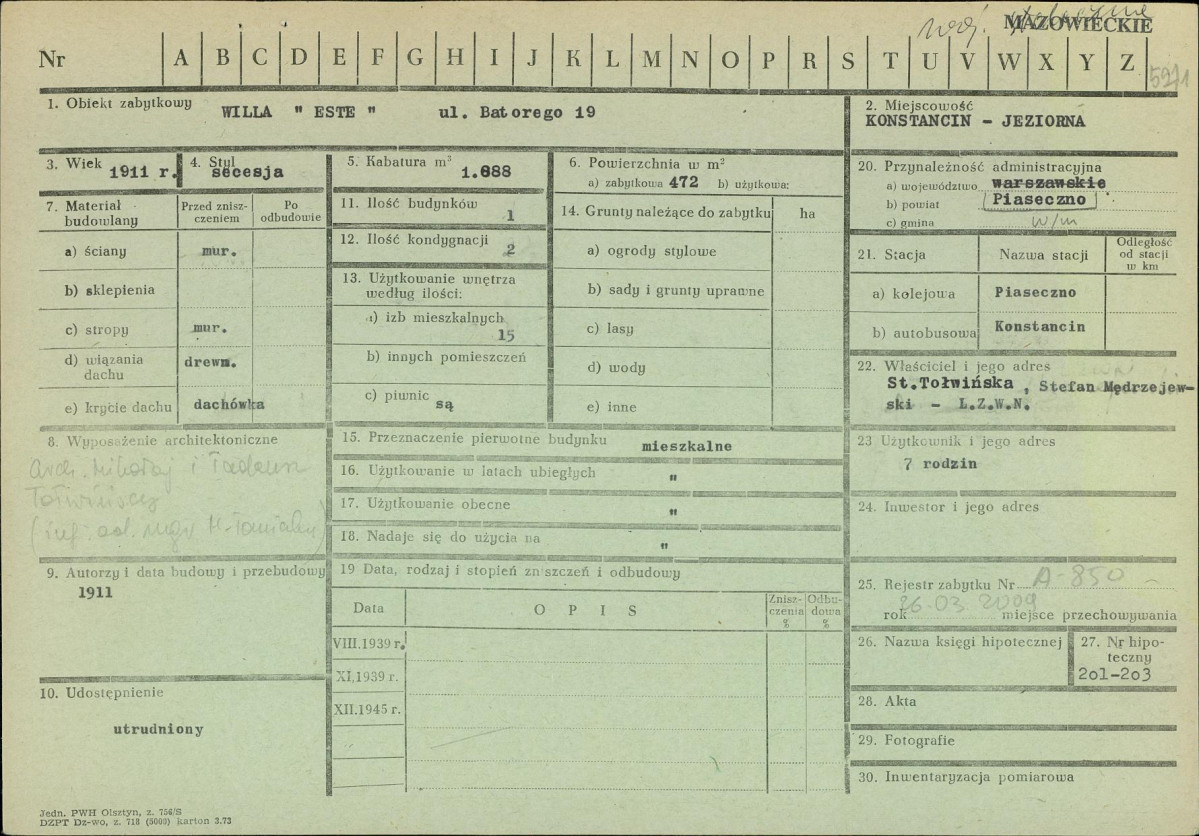 woj. MAZOWIECKIE
Nr A B C D E F G H I J K L M N O P R S T U V W X Y Z
1. Obiekt zabytkowy WILLA " ESTE " ul. Batorego 19
2. Miejscowość
KONSTANCIN - JEZIORNA
3. Wiek 1911 r.
4. Styl
secesja
5. Kabatura m³
1.688
6. Powierzchnia w m²
a) zabytkowa 472 b) użytkowa:
7. Materiał
budowlany
Przed znisz-
czeniem
Po
odbudowie
a) ściany mur.
b) sklepienia
c) stropy mur.
d) wiązania
dachu
drewn.
e) krycie dachu dachówka
11. Ilość budynków
1
12. Ilość kondygnacji
2
13. Użytkowanie wnętrza
według ilości:
a) izb mieszkalnych
15
b) innych pomieszczeń
c) piwnic
są
14. Grunty należące do zabytku ha
a) ogrody stylowe
b) sady i grunty uprawne
c) lasy
d) wody
e) inne
20. Przynależność administracyjna
a) województwo warszawskie
b) powiat Piaseczno
c) gmina w/m
21. Stacja Nazwa stacji
Odległość
od stacji
w km
a) kolejowa Piaseczno
b) autobusowa Konstancin
22. Właściciel i jego adres
St.Tołwińska , Stefan Mędrzejew-
ski - L.Z.W.N.
8. Wyposażenie architektoniczne
arch. Mikołaj i Tadeusz
Tołwińscy
(inf. od. mgr
15. Przeznaczenie pierwotne budynku mieszkalne
16. Użytkowanie w latach ubiegłych "
17. Użytkowanie obecne "
18. Nadaje się do użycia na "
23 Użytkownik i jego adres
7 rodzin
24. Inwestor i jego adres
9. Autorzy i data budowy i przebudowy
1911
19 Data, rodzaj i stopień zniszczeń i odbudowy
Data O P I S
Znisz-
czenia
%
Odbu-
dowa
%
VIII.1939 r.
XI.1939 r.
XII.1945 r.
25. Rejestr zabytku Nr A-850
rok 26.03.2009 miejsce przechowywania
26. Nazwa księgi hipotecznej
27. Nr hipo-
teczny
2o1-2o3
10. Udostępnienie
utrudniony
28. Akta
29. Fotografie
30. Inwentaryzacja pomiarowa
Jedn. PWH Olsztyn, z. 756/S
DZPT Dz-wo, z. 718 (5000) karton 3.73